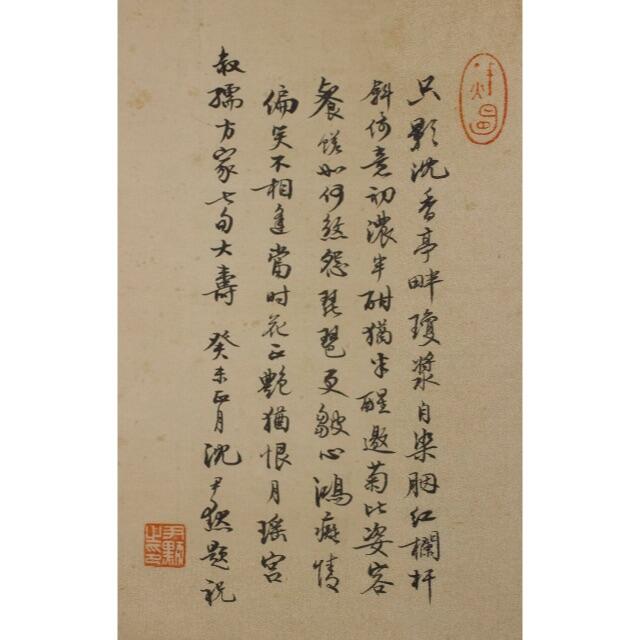 只影沈香亭畔瓊漿自染胭紅欄杆
斜倚意初濃半酣猶半醒邀菊比姿容
如何怨琵琶更皺心鴻癡情
偏笑不相逢當時花正艷猶恨月瑤宮
叔孺方家七旬大壽 癸未正月沈尹默題祝
尹默之印